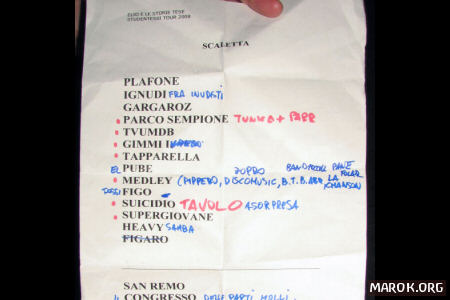 ELIO E LE STORIE TESE
STUDENTESSI TOUR 2008
SCALETTA
PLAFONE
IGNUDI FRA INUDISTI
GARGAROZ
PARCO SEMPIONE TUNKB + PAPP
TVUMDB
GIMMI I
TAPPARELLA
EL PUBE
MEDLEY (PIPPERO, DISCOMUSIC, B.T.B.
FIGO
SUICIDIO TAVOLO A SORPRESA
SUPERGIOVANE
HEAVY SAMBA
FIGARO
SAN REMO
CONGRESSO DELLE PARTI MOLLI
MAROK.ORG